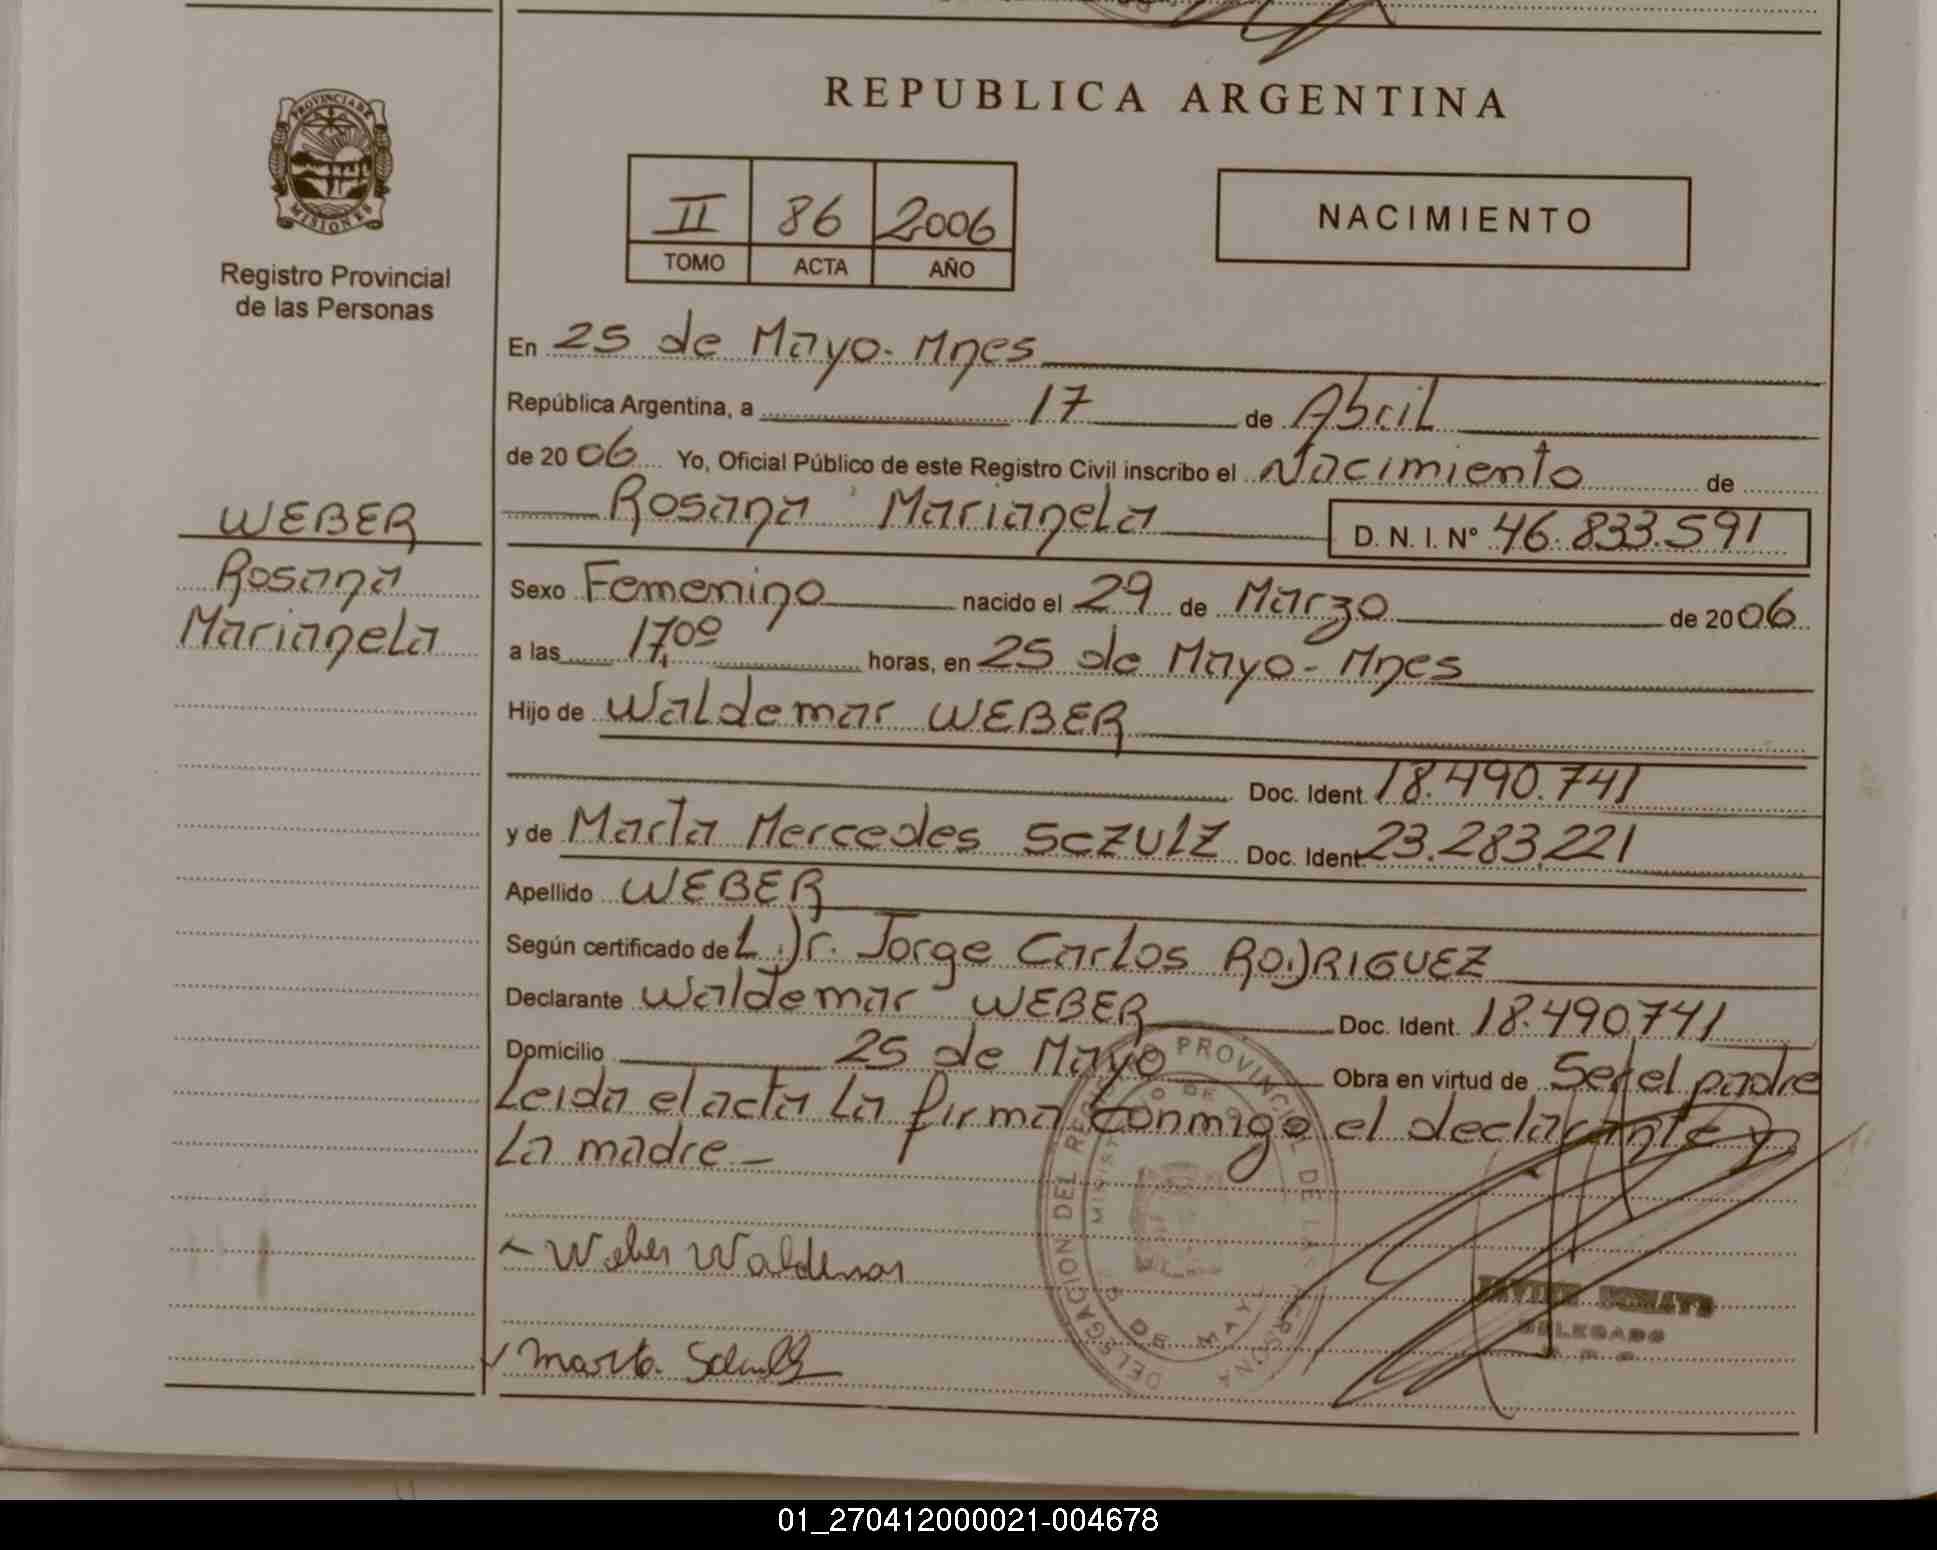 REPUBLICA ARGENTINA
PROVINCIA DE
MISIONES
Registro Provincial
de las Personas
II 86 2006
TOMO ACTA AÑO
NACIMIENTO
En 25 de Mayo - Mnes
República Argentina, a 17 de Abril
de 2006 Yo, Oficial Público de este Registro Civil inscribo el Nacimiento de
Rosana Marianela D. N. I. Nº 46.833.591
WEBER
Rosana
Marianela
Sexo Femenino nacido el 29 de Marzo de 2006
a las 17,00 horas, en 25 de Mayo - Mnes
Hijo de Waldemar WEBER
Doc. Ident. 18.490.741
y de Marta Mercedes SCZULZ Doc. Ident. 23.283.221
Apellido WEBER
Según certificado de L. Dr. Jorge Carlos RODRIGUEZ
Declarante Waldemar WEBER Doc. Ident. 18.490741
Domicilio 25 de Mayo Obra en virtud de Ser el padre
Leida el acta la firma conmigo el declarante y
la madre -
Weber Waldemar
Marta
DELEGACION DEL PROVINCIAL DE LAS
DE MAYO
DELEGADO
01_270412000021-004678